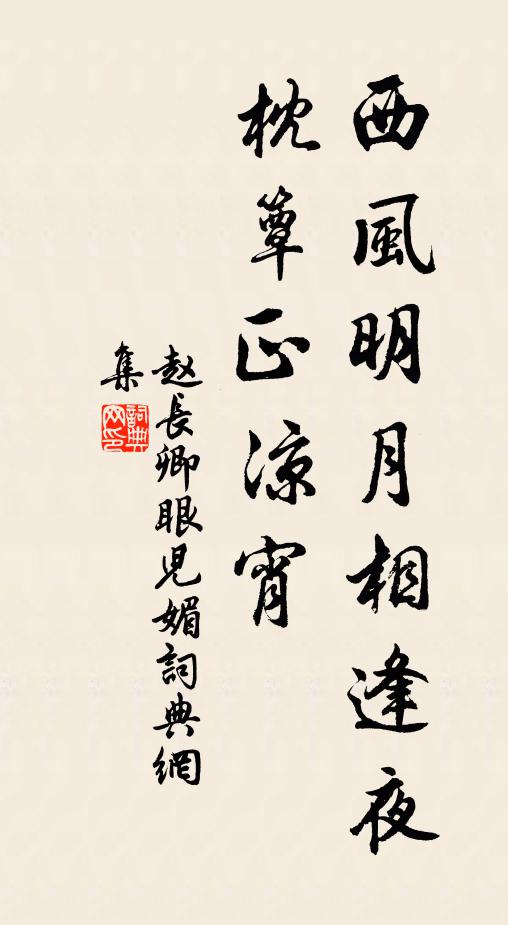 西風明月相逢夜
枕簟正涼宵
赵長卿眼児媚詞典網
集
詞典
网印